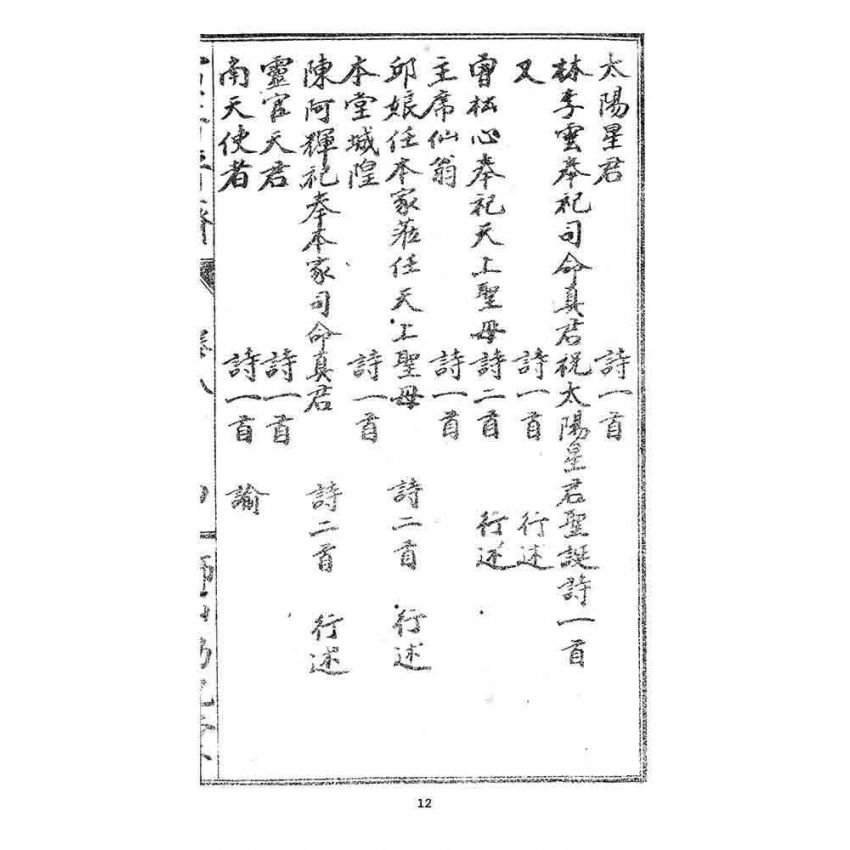 太陽星君 詩一首
林李雲奉祀司命真君祝太陽星君聖誕詩一首
又 詩一首 行述
曾松心奉祀天上聖母詩二首 行述
主席仙翁 詩一首
邱娘任本家蒞任天上聖母 詩二首 行述
本堂城隍 詩一首
陳阿輝祀奉本家司命真君 詩二首 行述
靈官天君 詩一首
南天使者 詩一首 諭
12